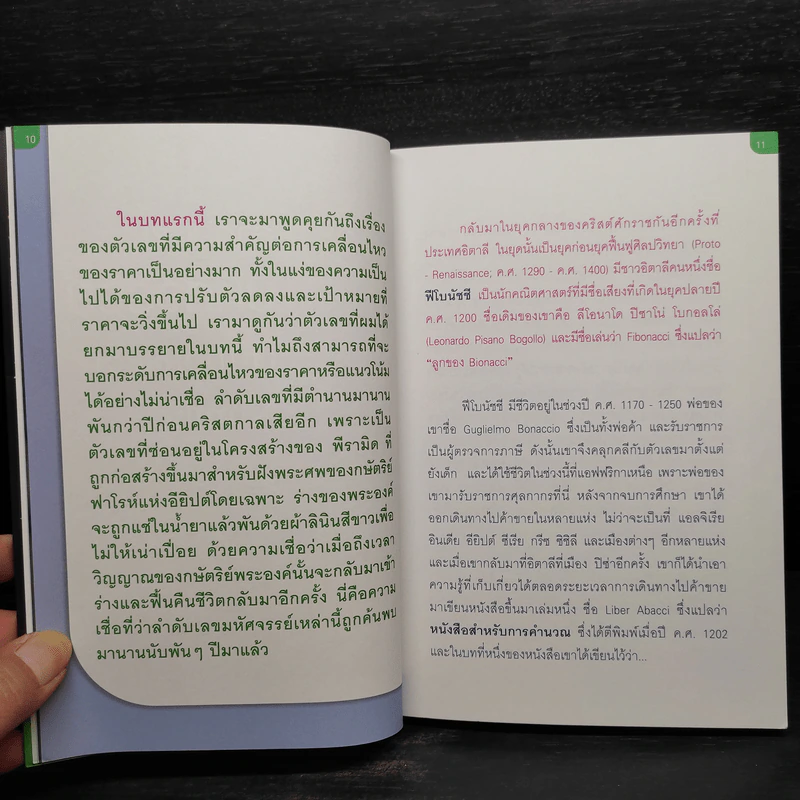 10
ในบทแรกนี้ เราจะมาพูดคุยกันถึงเรื่อง
ของตัวเลขที่มีความสำคัญต่อการเคลื่อนไหว
ของราคาเป็นอย่างมาก ทั้งในแง่ของความเป็น
ไปได้ของการปรับตัวลดลงและเป้าหมายที่
ราคาจะวิ่งขึ้นไป เรามาดูกันว่าตัวเลขที่ผมได้
ยกมาบรรยายในบทนี้ ทำไมถึงสามารถที่จะ
บอกระดับการเคลื่อนไหวของราคาหรือแนวโน้ม
ได้อย่างไม่น่าเชื่อ ลำดับเลขที่มีตำนานมานาน
พันกว่าปีก่อนคริสตกาลเสียอีก เพราะเป็น
ตัวเลขที่ซ่อนอยู่ในโครงสร้างของ พีรามิด ที่
ถูกก่อสร้างขึ้นมาสำหรับฝังพระศพของกษัตริย์
ฟาโรห์แห่งอียิปต์โดยเฉพาะ ร่างของพระองค์
จะถูกแช่ในน้ำยาแล้วพันด้วยผ้าลินินสีขาวเพื่อ
ไม่ให้เน่าเปื่อย ด้วยความเชื่อว่าเมื่อถึงเวลา
วิญญาณของกษัตริย์พระองค์นั้นจะกลับมาเข้า
ร่างและฟื้นคืนชีวิตกลับมาอีกครั้ง นี่คือความ
เชื่อที่ว่าลำดับเลขมหัศจรรย์เหล่านี้ถูกค้นพบ
มานานนับพันๆ ปีมาแล้ว
11
กลับมาในยุคกลางของคริสต์ศักราชกันอีกครั้งที่
ประเทศอิตาลี ในยุดนั้นเป็นยุคก่อนยุคฟื้นฟูศิลปวิทยา (Proto
- Renaissance; ค.ศ. 1290 - ค.ศ. 1400) มีชาวอิตาลีคนหนึ่งชื่อ
ฟีโบนัซซี เป็นนักคณิตศาสตร์ที่มีชื่อเสียงที่เกิดในยุคปลายปี
ค.ศ. 1200 ชื่อเดิมของเขาคือ ลีโอนาโด ปิซาโน่ โบกอลโล่
(Leonardo Pisano Bogollo) และมีชื่อเล่นว่า Fibonacci ซึ่งแปลว่า
"ลูกของ Bionacci"
ฟีโบนัซซี มีชีวิตอยู่ในช่วงปี ค.ศ. 1170 - 1250 พ่อของ
เขาชื่อ Guglielmo Bonaccio ซึ่งเป็นทั้งพ่อค้า และรับราชการ
เป็นผู้ตรวจการภาษี ดังนั้นเขาจึงคลุกคลีกับตัวเลขมาตั้งแต่
ยังเด็ก และได้ใช้ชีวิตในช่วงนี้ที่แอฟฟริกาเหนือ เพราะพ่อของ
เขามารับราชการศุลกากรที่นี่ หลังจากจบการศึกษา เขาได้
ออกเดินทางไปค้าขายในหลายแห่ง ไม่ว่าจะเป็นที่ แอลจิเรีย
อินเดีย อียิปต์ ซีเรีย กรีซ ซิซิลี และเมืองต่างๆ อีกหลายแห่ง
และเมื่อเขากลับมาที่อิตาลีที่เมือง ปิซ่าอีกครั้ง เขาก็ได้นำเอา
ความรู้ที่เก็บเกี่ยวได้ตลอดระยะเวลาการเดินทางไปค้าขาย
มาเขียนหนังสือขึ้นมาเล่มหนึ่ง ชื่อ Liber Abacci ซึ่งแปลว่า
หนังสือสำหรับการคำนวณ ซึ่งได้ตีพิมพ์เมื่อปี ค.ศ. 1202
และในบทที่หนึ่งของหนังสือเขาได้เขียนไว้ว่า...